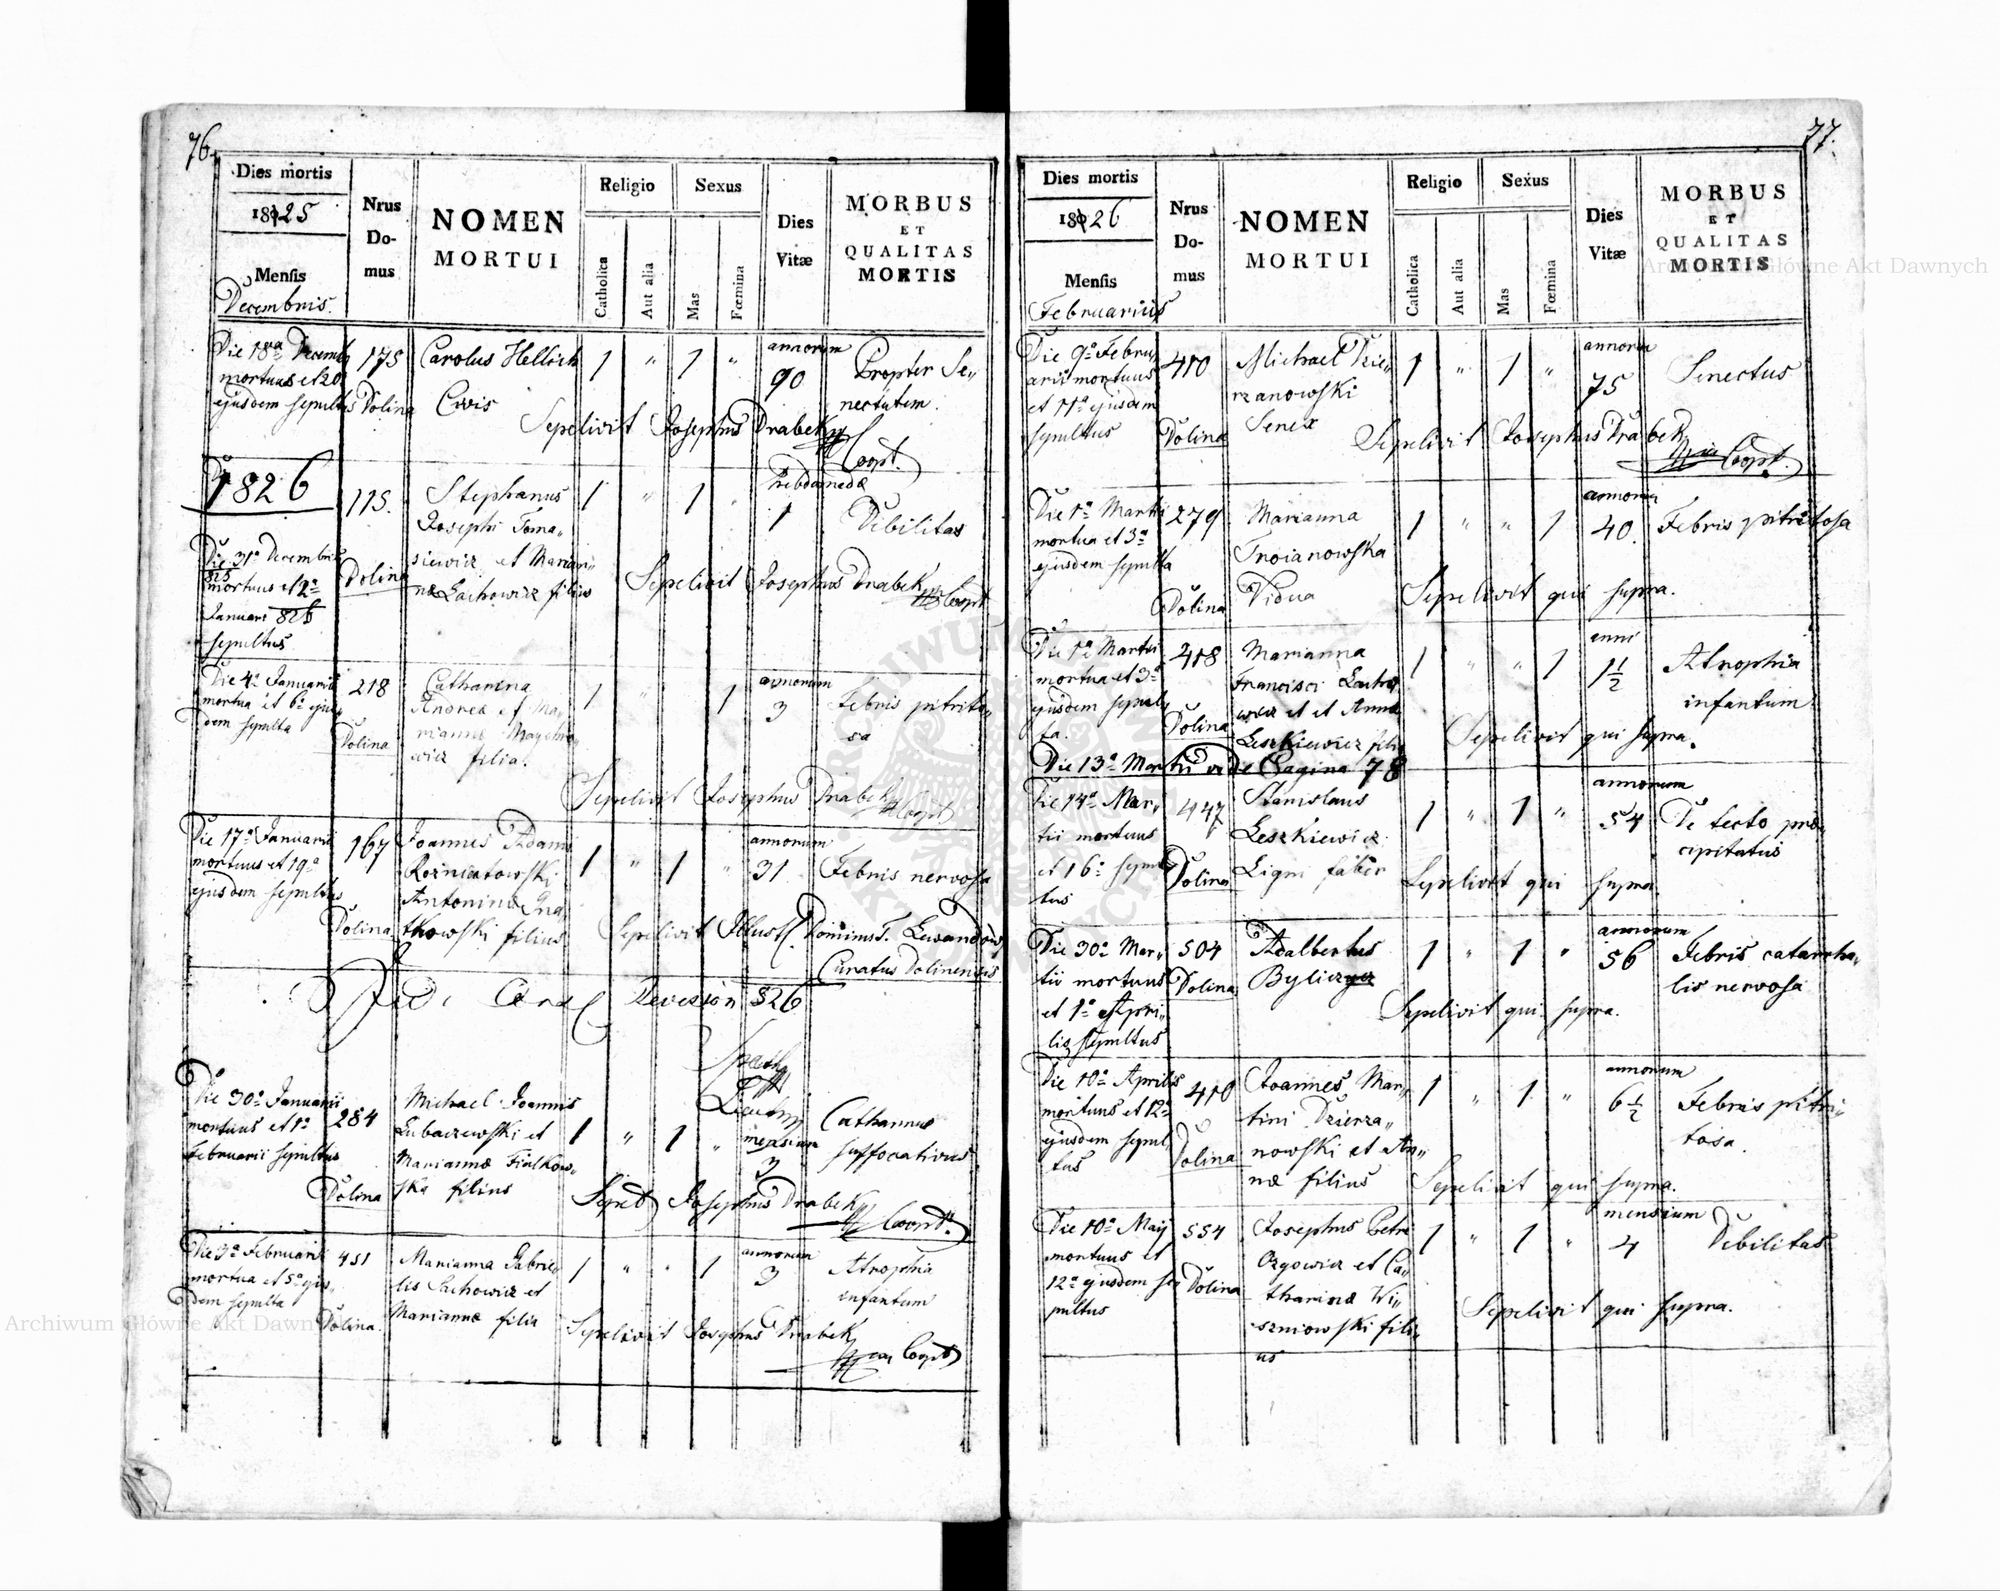 76.
Dies mortis
1825
Mensis
Decembris.
Nrus
Do-
mus
NOMEN
MORTUI
Religio
Catholica
Aut alia
Sexus
Mas
Fœmina
Dies
Vitæ
MORBUS
ET
QUALITAS
MORTIS
Die 18va Decemb
mortuus et 20
ejusdem sepultus
175
Dolina
Carolus Hellich
Civis
1 " 1 "
annorum
90
Propter Se„
nectutem.
Sepelivit Josephus Drabek
Coopt.
1826
Die 31a Decembris
825
mortuus et 2a
Januari 826
sepultus
115.
Dolina
Stephanus
Josephi Toma„
siewicz et Marian„
næ Lachowicz filius
1 " 1 "
hebdomadæ
1
Debilitas
Sepelivit Josephus Drabek Coopt
Die 4a Januarii
mortua et 6a ejus„
dem sepulta
218
Dolina
Catharina
Andreæ et Ma„
riannæ
wicz filia.
1 " 1
annorum
3
Febris pitrito„
sa
Sepelivit Josephus Drabek Coopt
Die 17a Januarii
mortuus et 19a
ejusdem sepultus
167
Dolina
Joannes Adami
Rozniatowski
Antoninæ Gna„
tkowski filius
1 " 1 "
annorum
31
Febris nervosa
Sepelivit Illust. Dominus T. Lewandows
Curatus Dolinensis
Vidi Revision 826
Die 30a Januarii
mortuus et 1a
Februarii sepultus
284
Dolina
Michael Joannis
Lubaczewski et
Mariannæ Fialkow„
ska filius
1 " 1 "
mensium
3
Catharrus
suffocativus
Sepelt Josephus Drabek
Coopt.
Die 3a Februarii
mortua et 5a ejus„
dem sepulta
451
Dolina.
Marianna Gabrie„
lis Lachowicz et
Mariannæ filia
1 " " 1
annorum
3
Atrophia
infantum
Sepelivit Josephus Drabek
Coopt
77.
Dies mortis
1826
Mensis
Februariis
Nrus
Do-
mus
NOMEN
MORTUI
Religio
Catholica
Aut alia
Sexus
Mas
Fœmina
Dies
Vitæ
MORBUS
ET
QUALITAS
MORTIS
Die 9a Febru„
arii mortuus
et 11a ejusdem
sepultus
410
Dolina
Michael Dzie„
rzanowski
Senex
1 " 1 "
annorum
75
Senectus
Sepelivit Josephus Drabek
Coopt.
Die 1a Martii
mortua et 3a
ejusdem sepulta
279
Dolina
Marianna
Troianowska
Vidua
1 " " 1
annorum
40.
Febris pitritosa
Sepelivit qui supra.
Die 1a Martii
mortua et 3a
ejusdem sepul„
ta.
418
Dolina
Marianna
Francisci Lacho„
wicz et et Annæ
Leszkiewicz filia
1 " " 1
anni
1 1/2
Atrophia
infantum
Sepelivit qui supra.
Die 13a Martii vide Pagina 78
Die 14a Mar„
tii mortuus
et 16a sepul„
tus
447
Dolina
Stanislaus
Leszkiewicz
Ligni faber
1 " 1 "
annorum
54
De tecto præ„
cipitatus
Sepelivit qui supra
Die 30a Mar„
tii mortuus
et 1a Apri„
lis sepultus
504
Dolina
Adalbertus
1 " 1 "
annorum
56
Febris catarrha„
lis nervosa
Sepelivit qui supra.
Die 10a Aprilis
mortuus et 12a
ejusdem sepul„
tus
410
Dolina
Joannes Mar„
tini Dzierza„
nowski et An„
næ filius
1 " 1 "
annorum
6 1/2
Febris pitri„
tosa.
Sepelivit qui supra.
Die 10a Maij
mortuus et
12a ejusdem se„
pultus
554
Dolina
Josephus Petri
Ozgowicz et Ca„
tharinæ Wi„
szniowski fili„
us
1 " 1 "
mensium
4
Debilitas
Sepelivit qui supra.
Archiwum Główne Akt Dawnych
Archiwum Główne Akt Dawnych